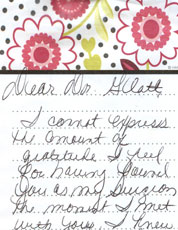 Dear Dr. Glatt,
I cannot express
the amount of
gratitude I feel
for having found
you as my surgeon
the moment I met
with you, I knew